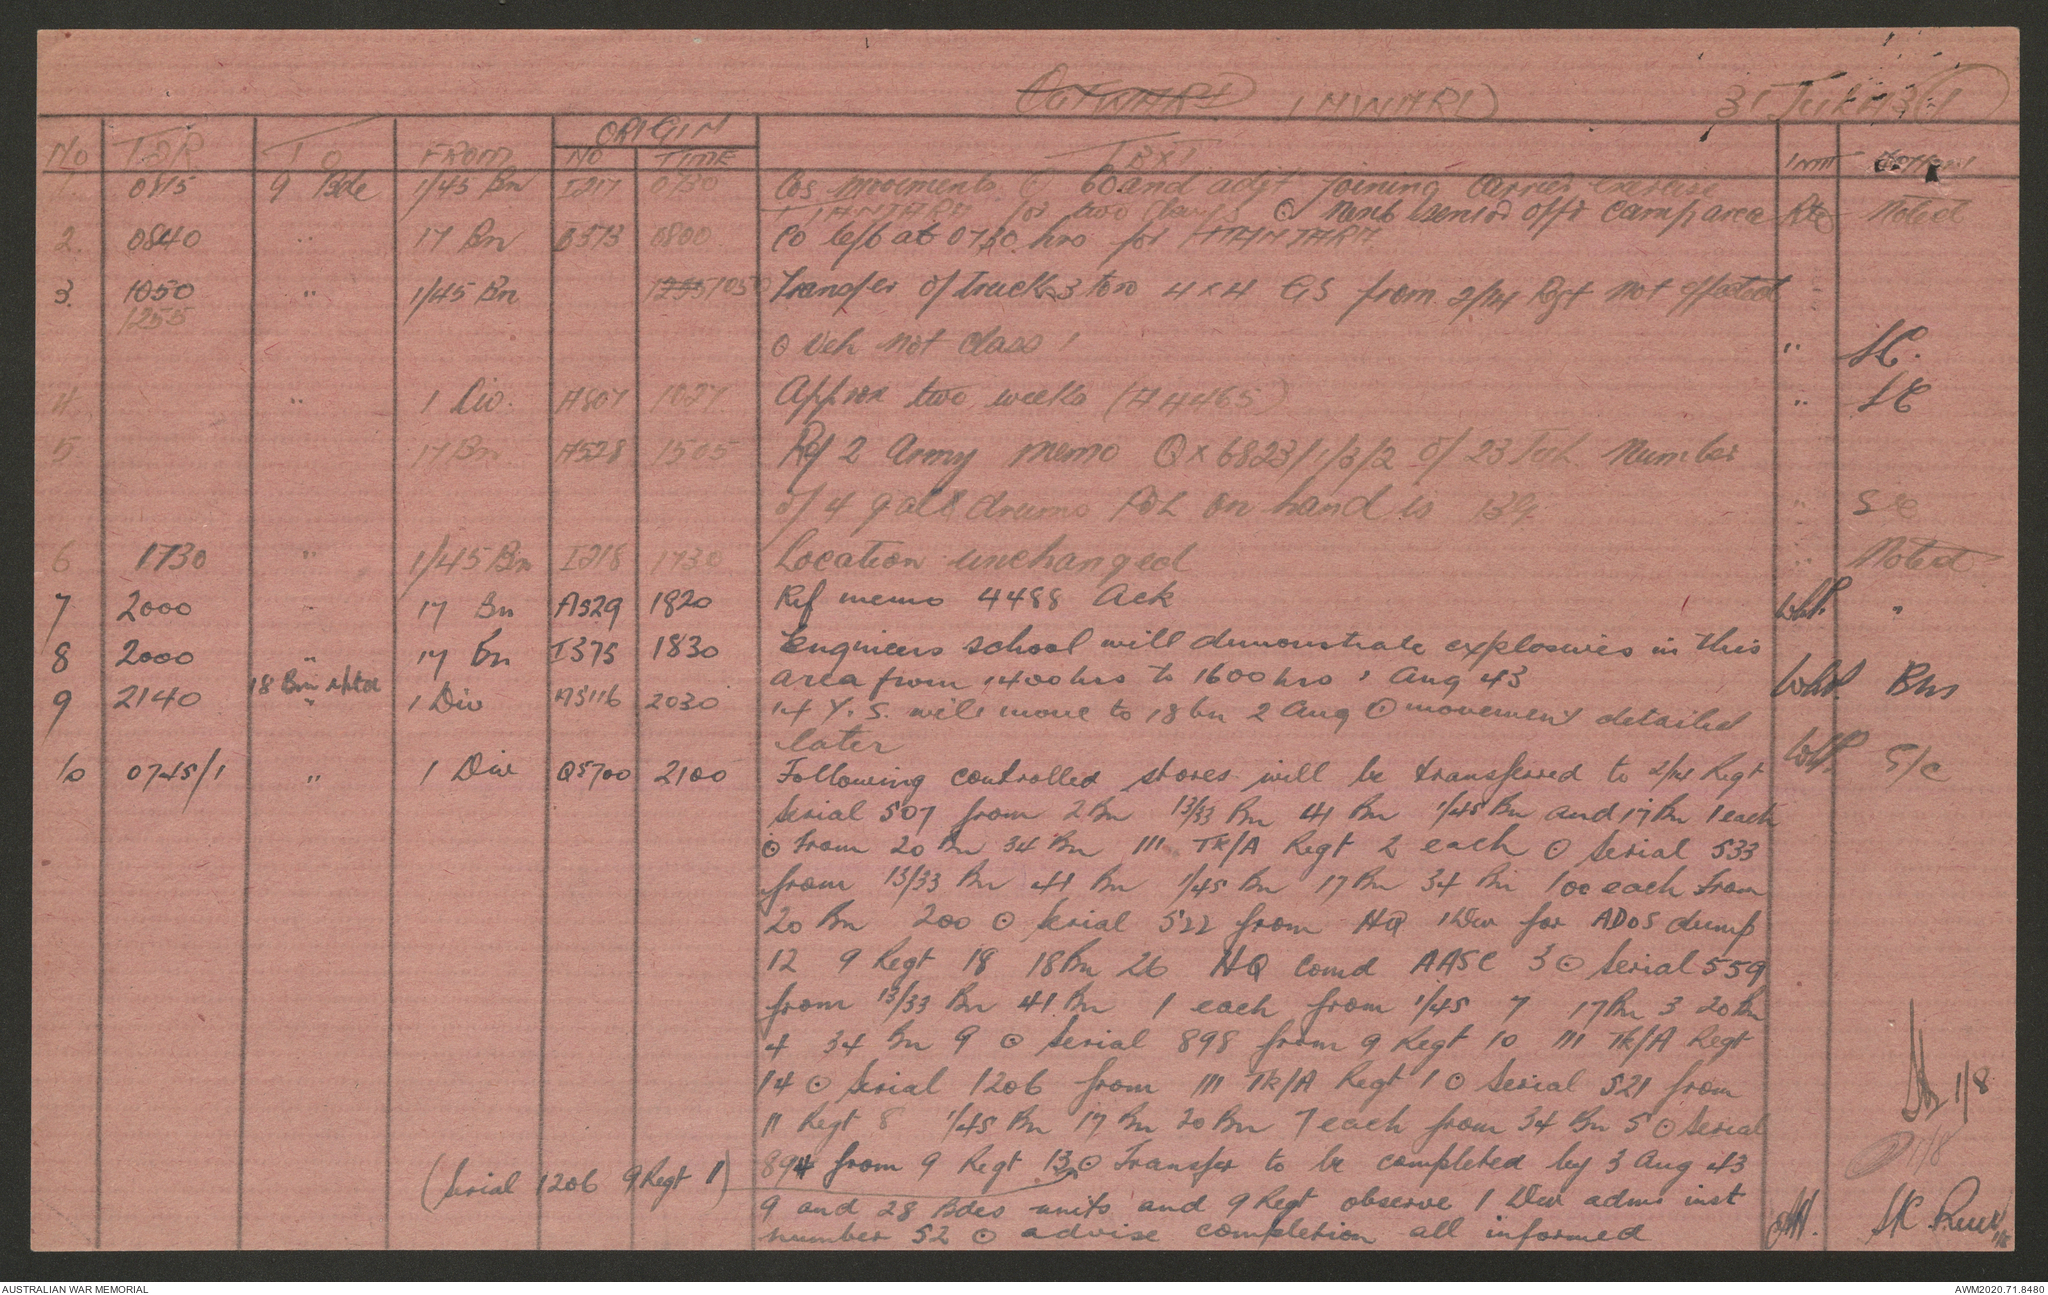 OUTWARD INWARD 31 JUL 43 1
ORIGIN
No TOR TO FROM NO TIME TEXT INIT
1. 0815 9 Bde 1/45 Bn I217 0730 Cos movements 60 and adjt joining carrier exercise
for two days ⊙ senior offr camp area Noted
2. 0840 " 17 Bn 0800 CO left at 0730 hrs for
3. 1050 " 1/45 Bn 1255 1050 Transfer of truck 3 ton 4x4 GS from 2/14 Regt not effected "
1255
⊙ Veh not class 1 " SC.
4 " 1 Div. A807 1027 Approx two weeks (A4465) " SC
5 17 Bn A528 1505 Ref 2 Army memo Qx6823/1/3/2 of 23 Jul Number
of 4 gall drums POL on hand is 139. " S/C
6 1730 " 1/45 Bn I218 1730 Location unchanged " Noted
7 2000 " 17 Bn A529 1820 Ref memo 4488 Ack "
8 2000 " 17 Bn I375 1830 Engineers school will demonstrate explosives in this
area from 1400 hrs to 1600 hrs 1 Aug 43 Bns
9 2140 18 Bn " 1 Div A3116 2030 14 Y.S. will move to 18 bn 2 Aug ⊙ movement detailed
later S/C
10 0745/1 " 1 Div Q5700 2100 Following controlled stores will be transferred to 2/14 Regt
Serial 507 from 2 Bn 13/33 Bn 41 Bn 1/45 Bn and 17 Bn 1 each
⊙ From 20 Bn 34 Bn 111 TK/A Regt 2 each ⊙ Serial 533
from 13/33 Bn 41 Bn 1/45 Bn 17 Bn 34 Bn 100 each from
20 Bn 200 ⊙ Serial 522 from HQ 1 Div for ADOS dump
12 9 Regt 18 18 Bn 26 HQ Comd AASC 3 ⊙ Serial 559
from 13/33 Bn 41 Bn 1 each from 1/45 7 17 Bn 3 20 Bn
4 34 Bn 9 ⊙ Serial 898 from 9 Regt 10 111 TK/A Regt
14 ⊙ Serial 1206 from 111 TK/A Regt 1 ⊙ Serial 521 from
1/8
11 Regt 8 1/45 Bn 17 Bn 20 Bn 7 each from 34 Bn 5 ⊙ Serial
1/8
(Serial 1206 9 Regt 11) 894 from 9 Regt 13 ⊙ Transfer to be completed by 3 Aug 43
9 and 28 Bdes units and 9 Regt observe 1 Div adm inst
number 52 ⊙ advise completion all informed SC
AUSTRALIAN WAR MEMORIAL AWM2020.71.8480